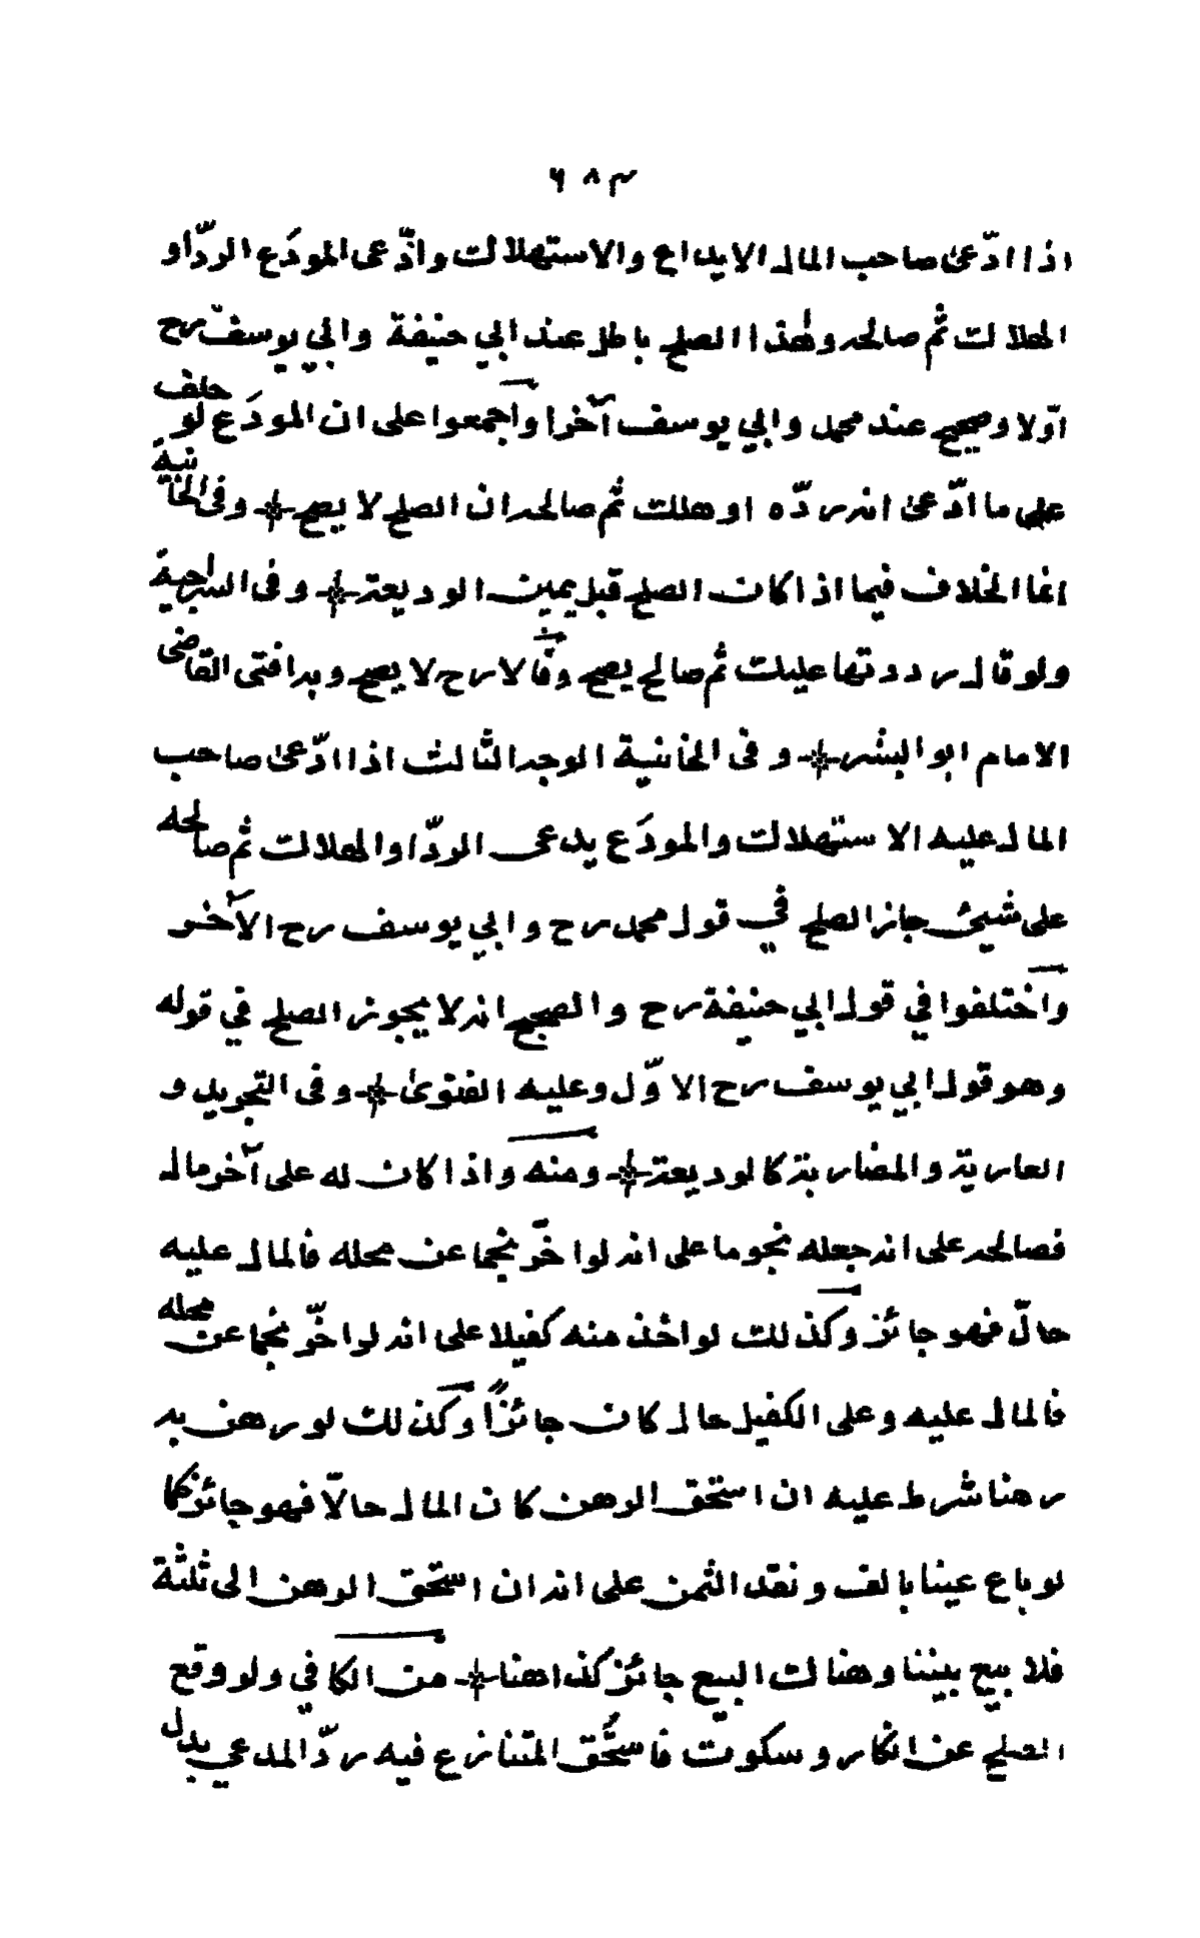 ٦٨٣
اذا ادّعىٰ صاحب المال الايداع والاستهلاك وادّعى المودَع الردّ او
الهلاك ثمّ صالحه وهٰذا الصلح باطل عند ابي حنيفة وابي يوسف رح
اوّلا وصحيح عند محمد وابي يوسف آخرا واجمعوا على ان المودَع لو حلف
على ما ادّعىٰ انه ردّه او هلك ثمّ صالحه ان الصلح لا يصح * وفى الخانية
انما الخلاف فيما اذا كان الصلح قبل يمين الوديعة * وفى السراجية
ولو قال رددتها عليك ثمّ صالح يصح وقالا رح لا يصح وبه افتى القاضى
الامام ابو اليسر * وفى الخانية الوجه الثالث اذا ادّعىٰ صاحب
المال عليه الاستهلاك والمودَع يدعى الردّ او الهلاك ثمّ صالحه
على شيئ جاز الصلح في قول محمد رح وابي يوسف رح الآخر
واختلفوا في قول ابي حنيفة رح والصحيح انه لا يجوز الصلح في قوله
وهو قول ابي يوسف رح الاوّل وعليه الفتوىٰ * وفى التجريد و
العارية والمضاربة كالوديعة * ومنه واذا كان له على آخر مال
فصالحه على انه جعله نجوما على انه لو اخّر نجما عن محله فالمال عليه
حالّ فهو جائز وكذلك لو اخذ منه كفيلا على انه لو اخّر نجما عن محله
فالمال عليه وعلى الكفيل حال كان جائزًا وكذلك لو رهن به
رهنا شرط عليه ان استحق الرهن كان المال حالّا فهو جائز كما
لو باع عينا بالف ونقد الثمن على انه ان استحق الرهن الى ثلثة
فلا بيع بيننا وهناك البيع جائز كذا هنا * من الكافي ولو وقع
الصلح عن انكار وسكوت فاستُحق المتنازع فيه ردّ المدعي بدل